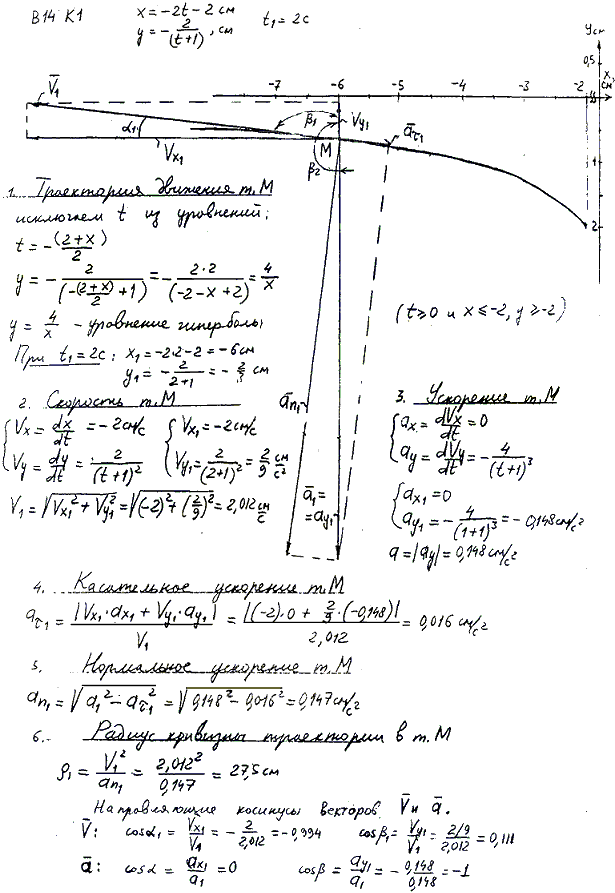 В14 К1
x = -2t - 2 см
y = -2/(t+1), см
t₁ = 2с
y см
0,5
-7 -6 -5 -4 -3 -2
x, см
1
2
V̄₁
α₁
Vx₁
β₁
Vy₁
āτ₁
M
β₂
1. Траектория движения т. М
исключаем t из уравнений;
t = -(2+x)/2
y = -2/(-(2+x)/2 + 1) = -2·2/(-2-x+2) = 4/x
y = 4/x - уравнение гиперболы
(t ≥ 0 и x ≤ -2, y ≥ -2)
При t₁ = 2с: x₁ = -2·2-2 = -6 см
y₁ = -2/(2+1) = -2/3 см
2. Скорость т. М
Vx = dx/dt = -2 см/с
Vx₁ = -2 см/с
Vy = dy/dt = 2/(t+1)²
Vy₁ = 2/(2+1)² = 2/9 см/с²
V₁ = √(Vx₁² + Vy₁²) = √((-2)² + (2/9)²) = 2,012 см/с
ān₁
ā₁ =
= ay₁
3. Ускорение т. М
ax = dVx/dt = 0
ay = dVy/dt = -4/(t+1)³
ax₁ = 0
ay₁ = -4/(1+1)³ = -0,148 см/с²
a = |ay| = 0,148 см/с²
4. Касательное ускорение т. М
aτ₁ = |Vx₁·ax₁ + Vy₁·ay₁|/V₁ = |(-2)·0 + 2/9·(-0,148)|/2,012 = 0,016 см/с²
5. Нормальное ускорение т. М
an₁ = √(a₁² - aτ₁²) = √(0,148² - 0,016²) = 0,147 см/с²
6. Радиус кривизны траектории в т. М
ρ₁ = V₁²/an₁ = 2,012²/0,147 = 27,5 см
Направляющие косинусы векторов V̄ и ā.
V̄: cosα₁ = Vx₁/V₁ = -2/2,012 = -0,994 cosβ₁ = Vy₁/V₁ = (2/9)/2,012 = 0,111
ā: cosα = ax₁/a₁ = 0 cosβ = ay₁/a₁ = -0,148/0,148 = -1